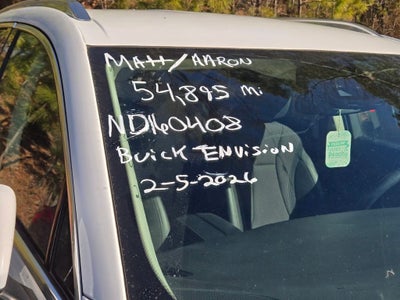 MATT/AARON
54,895 mi
ND160408
Buick ENVISION
2-5-2026